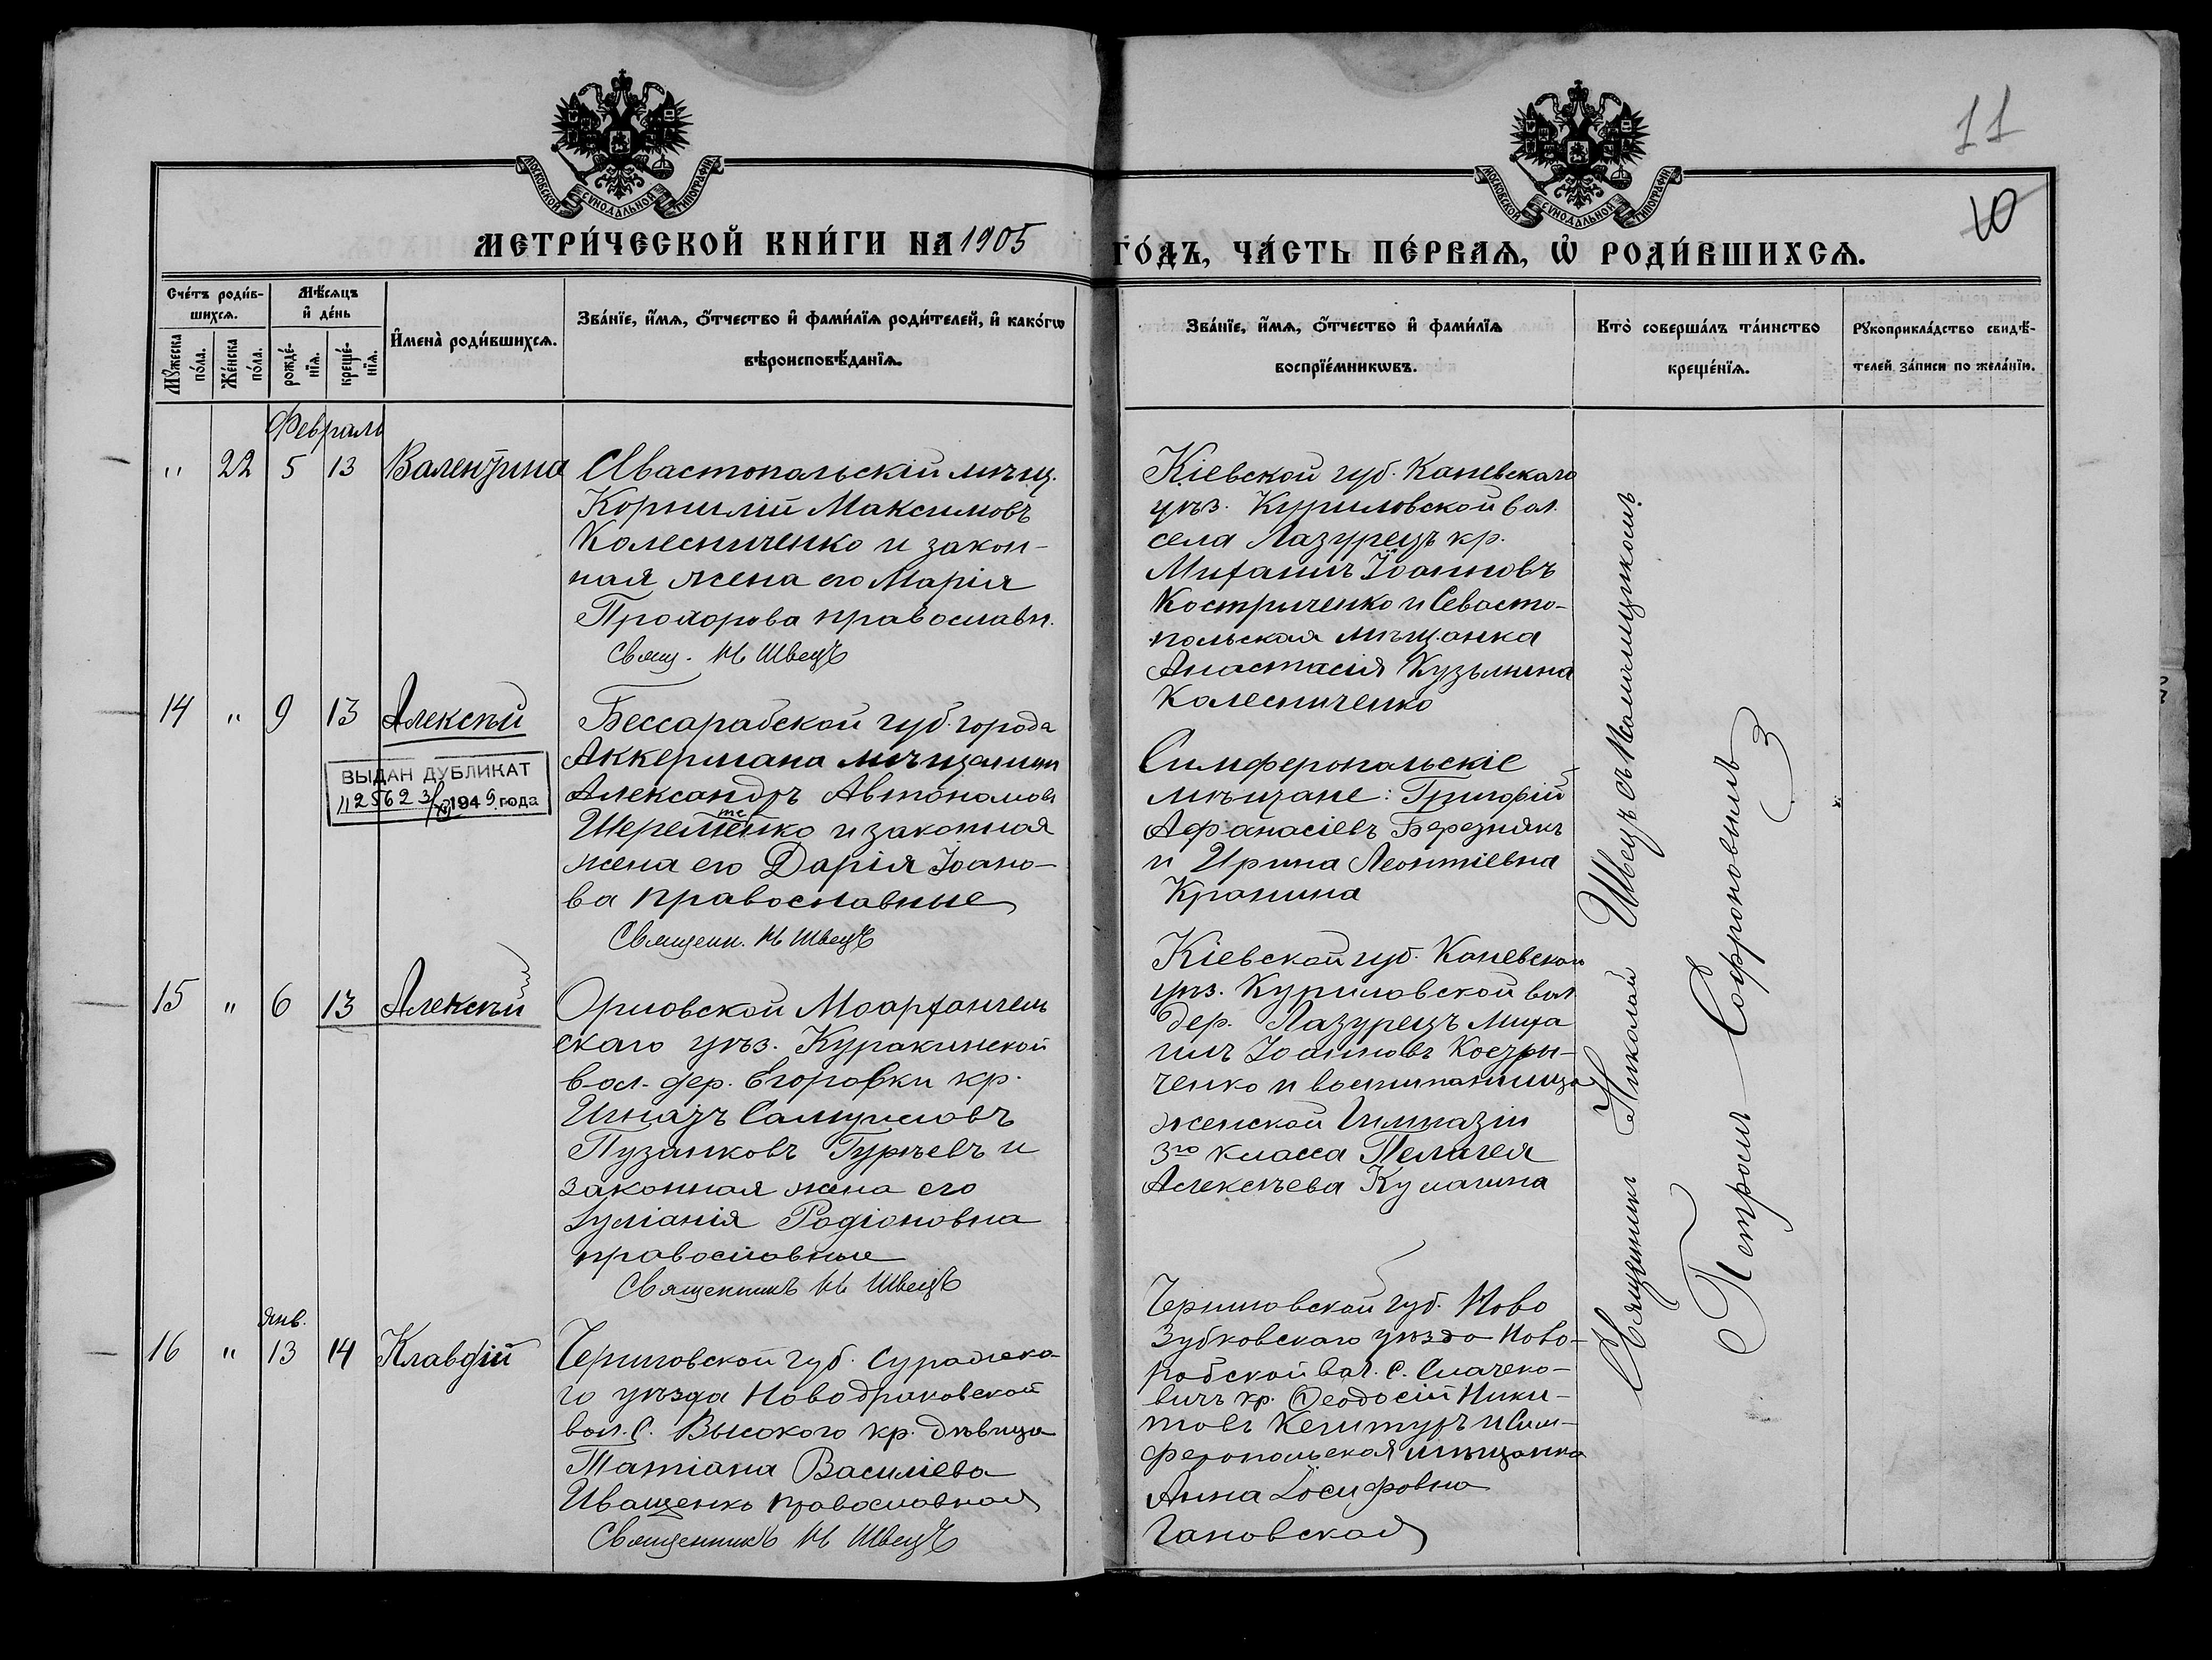 11
10
МОСКОВСКОЙ СѴНОДАЛЬНОЙ ТИПОГРАФІИ
МОСКОВСКОЙ СѴНОДАЛЬНОЙ ТИПОГРАФІИ
МЕТРИ́ЧЕСКОЙ КНИ́ГИ НА 1905
ГО́ДЪ, ЧА́СТЬ ПЕ́РВАѦ, Ѡ҆ РОДИ́ВШИХСѦ.
Сче́тъ роди́в-
шихсѧ.
Мꙋ́жеска
по́ла.
Же́нска
по́ла.
Мѣ́сѧцъ
и҆ де́нь
рожде́-
нїѧ.
креще́-
нїѧ.
И҆мена̀ роди́вшихсѧ.
Зва́нїе, и҆́мѧ, ѻ҆́тчество и҆ фами́лїѧ роди́телей, и҆ како́гѡ
вѣроисповѣ́данїѧ.
Зва́нїе, и҆́мѧ, ѻ҆́тчество и҆ фами́лїѧ
воспрїе́мникѡвъ.
Кто̀ соверша́лъ та́инство
креще́нїѧ.
Рꙋкоприкла́дство свидѣ́-
телей за́писи по жела́нїю.
Февраль
" 22 5 13 Валентина
Севастопольскій мѣщ.
Корнилій Максимовъ
Колесниченко и закон-
ная жена его Марія
Прохорова православн.
Свящ. Н Швецъ
Кіевской губ. Каневскаго
уѣз. Куриловской вол.
села Лазурецъ кр.
Михаилъ Іоанновъ
Костриченко и Севасто-
польская мѣщанка
Анастасія Кузьмина
Колесниченко
14 " 9 13 Алексѣй
ВЫДАН ДУБЛИКАТ
1949 года
Бессарабской губ. города
Аккермана мѣщанин
Александръ Автономов
Шереметенко и законная
жена его Дарія Іоано-
ва православные
Священ. Н Швецъ
Симферопольскіе
мѣщане: Григорій
Афанасіевъ Березнякъ
и Ирина Леонтіевна
Кранина
15 " 6 13 Алексѣй
Орловской Моархангель
скаго уѣз. Куракинской
вол. дер. Егоровки кр.
Игнатъ Самуиловъ
Пузанковъ Гурѣевъ и
законная жена его
Іуліанія Родіоновна
православные
Священникъ Н Швецъ
Кіевской губ. Каневскаго
уѣз. Куриловской вол
дер. Лазурецъ Миха
илъ Іоанновъ Костри-
ченко и воспитанница
женской Гимназіи
3го класса Пелагея
Алексѣева Кулагина
Янв.
16 " 13 14 Клавдій
Черниговской губ. Суражска-
го уѣзда Новодроковской
вол. с. Высокого кр. дѣвица
Татіана Василіева
Иващенко православная
Священникъ Н Швецъ
Черниговской губ. Ново
Зубковскаго уѣзда Ново-
робской вол. с.
вичъ кр. Ѳеодосій Ники-
товъ и Сим-
феропольская мѣщанка
Анна Іосифовна
Гановская
Священникъ Николай Швецъ съ Псаломщикомъ
Петромъ Софроновымъ